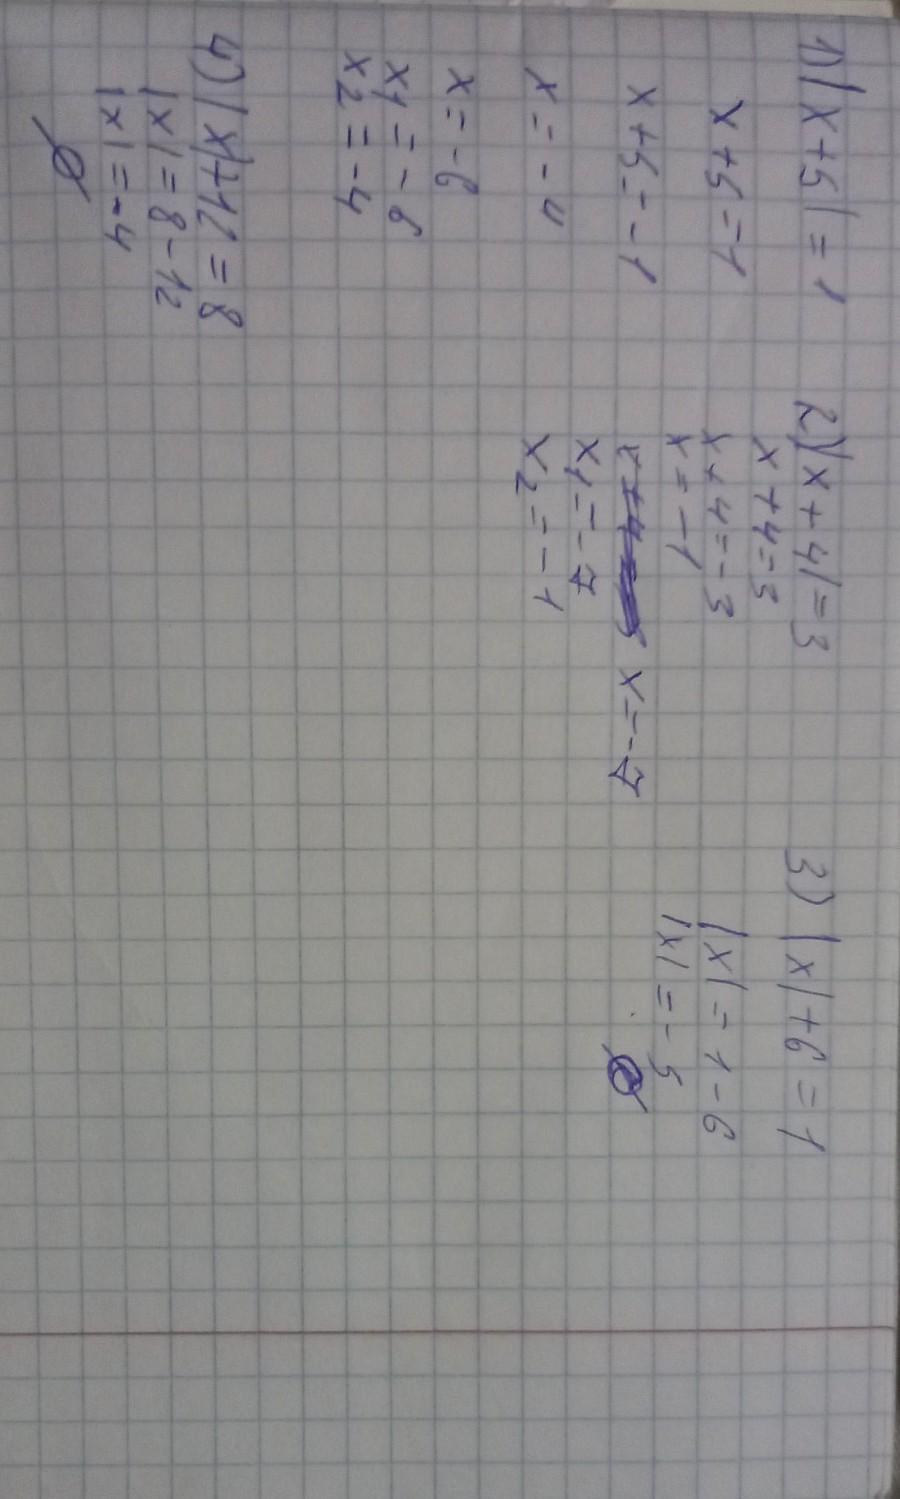 1) |x+5|=1
x+5=1
x+5=-1
x=-4
x=-6
x1=-6
x2=-4
2) |x+4|=3
x+4=3
x+4=-3
x=-1
x=-7
x1=-7
x2=-1
3) |x|+6=1
|x|=1-6
|x|=-5
∅
4) |x|+12=8
|x|=8-12
|x|=-4
∅